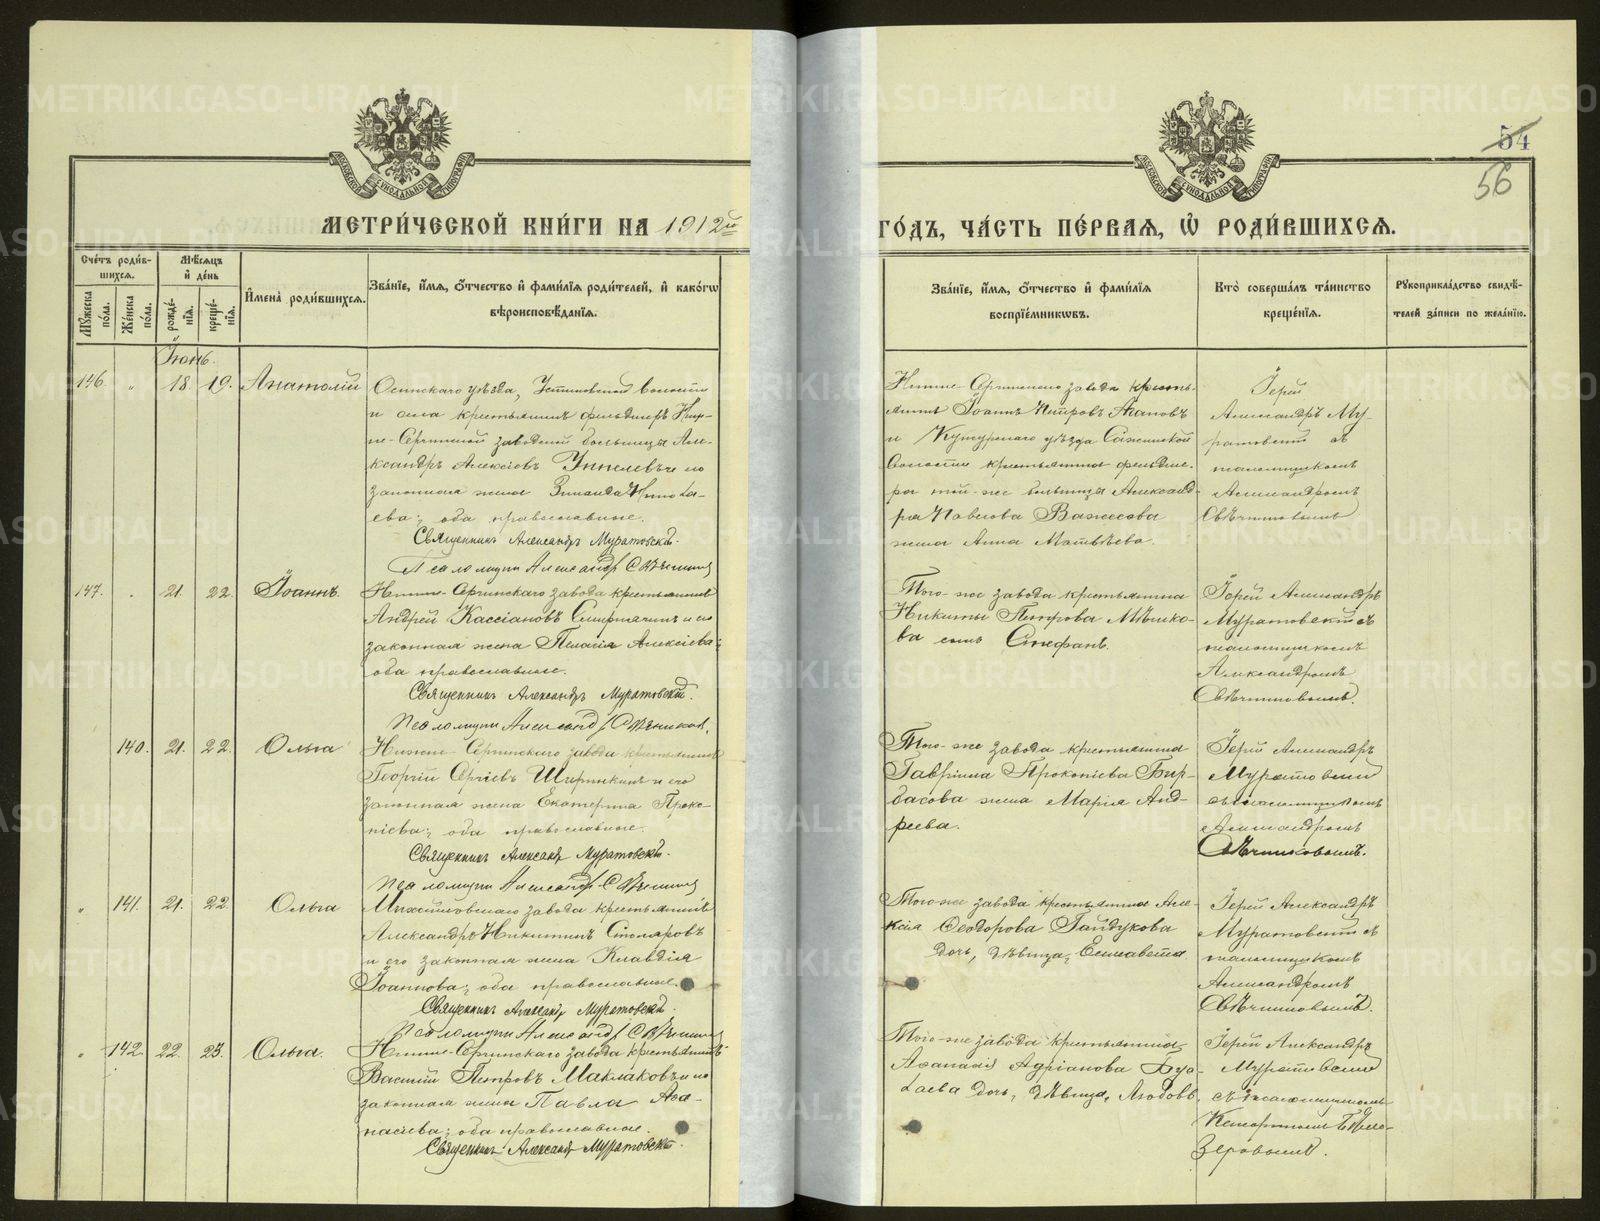 54
56
МОСКОВСКОЙ СѴНОДАЛЬНОЙ ТИПОГРАФІИ
МОСКОВСКОЙ СѴНОДАЛЬНОЙ ТИПОГРАФІИ
МЕТРИ́ЧЕСКОЙ КНИ́ГИ НА 1912й
ГО́ДЪ, ЧА́СТЬ ПЕ́РВАѦ, Ѡ҆ РОДИ́ВШИХСѦ.
Сче́тъ роди́в-
шихсѧ.
Мꙋ́жеска по́ла.
Же́нска по́ла.
Мѣ́сѧцъ
и҆ де́нь
рожде́-
нїѧ.
креще́-
нїѧ.
И҆мена̀ роди́вшихсѧ.
Зва́нїе, и҆́мѧ, ѻ҆́тчество и҆ фами́лїѧ роди́телей, и҆ како́гѡ
вѣроисповѣ́данїѧ.
Зва́нїе, и҆́мѧ, ѻ҆́тчество и҆ фами́лїѧ
воспрїе́мникѡвъ.
Кто̀ соверша́лъ та́инство
креще́нїѧ.
Рꙋкоприкла́дство свидѣ́-
телей за́писи по жела́нїю.
Іюнь.
146. „ 18. 19. Анатолій
Осинскаго уѣзда, Устиновской волости
и села крестьянинъ фельдшеръ Ниж-
не-Сергинской заводской больницы Але-
ксандръ Алексіевъ и его
законная жена Зинаида Никола-
ева; оба православные.
Священникъ Александръ Муратовскій.
Псаломщикъ Александръ Свѣчниковъ
Нижне-Сергинскаго завода кресть-
янинъ Іоаннъ Петровъ Агаповъ
и Кунгурскаго уѣзда Сажинской
волости крестьянина фельдше-
ра той-же больницы Александ-
ра Павлова Важесова
жена Анна Матвѣева.
Іерей
Александръ Му-
ратовскій съ
псаломщикомъ
Александромъ
Свѣчниковымъ
147. „ 21. 22. Іоаннъ.
Нижне-Сергинскаго завода крестьянинъ
Андрей Кассіановъ и его
законная жена Пелагія Алексіева;
оба православные.
Священникъ Александръ Муратовскій.
Псаломщикъ Александръ Свѣчниковъ.
Того-же завода крестьянина
Никиты Петрова Мѣшко-
ва сынъ Стефанъ.
Іерей Александръ
Муратовскій съ
псаломщикомъ
Александромъ
Свѣчниковымъ.
140. 21. 22. Ольга
Нижне-Сергинскаго завода крестьянинъ
Георгій Сергіевъ Ширинкинъ и его
законная жена Екатерина Проко-
піева; оба православные.
Священникъ Александръ Муратовскій.
Псаломщикъ Александръ Свѣчниковъ
Того-же завода крестьянина
Гавріила Прокопіева Бир-
басова жена Марія Анд-
реева.
Іерей Александръ
Муратовскій
съ псаломщикомъ
Александромъ
Свѣчниковымъ.
„ 141. 21. 22. Ольга
Михайловскаго завода крестьянинъ
Александръ Никитинъ Столяровъ
и его законная жена Клавдія
Іоаннова; оба православные.
Священникъ Александръ Муратовскій.
Псаломщикъ Александръ Свѣчниковъ
Того-же завода крестьянина Але-
ксія Ѳеодорова Гайдукова
дочь, дѣвица, Елисавета
Іерей Александръ
Муратовскій съ
псаломщикомъ
Александромъ
Свѣчниковымъ.
„ 142. 22. 23. Ольга.
Нижне-Сергинскаго завода крестьянинъ
Василій Петровъ Маклаковъ и его
законная жена Павла Аѳа-
насіева; оба православные.
Священникъ Александръ Муратовскій.
Того-же завода крестьянина
Аѳанасія Адріанова
дочь, дѣвица, Любовь.
Іерей Александръ
Муратовскій
съ псаломщикомъ
Бѣло-
зеровымъ.
METRIKI.GASO-URAL.RU